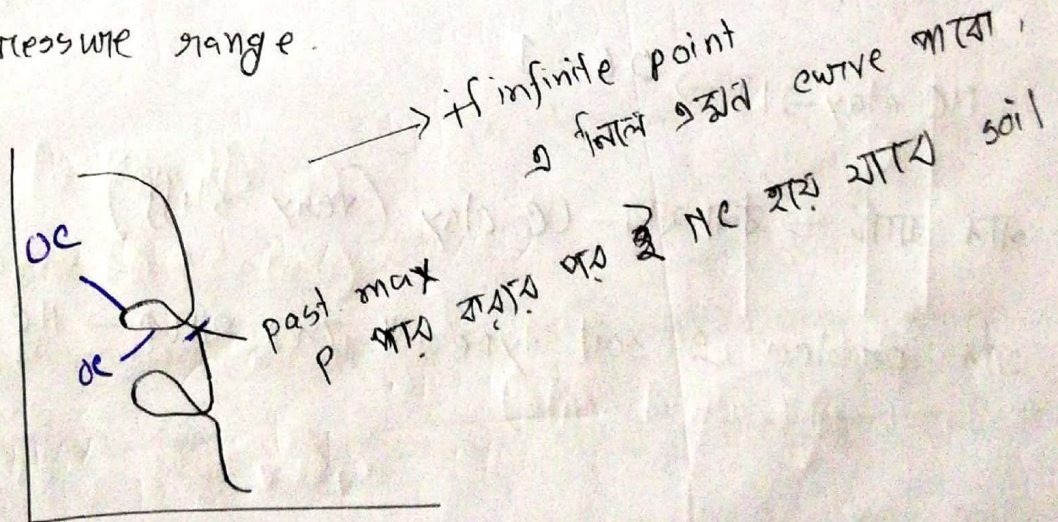 ressure range.
→ if infinite point
এ নিলে এমন curve পাবো,
OC
OC
past max
P পার করার পর ই NC হয়ে যাবে soil